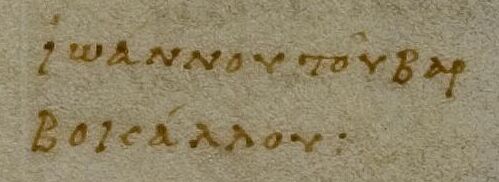 ἰωάννου τοῦ βαρ
βοϊσάλλου: